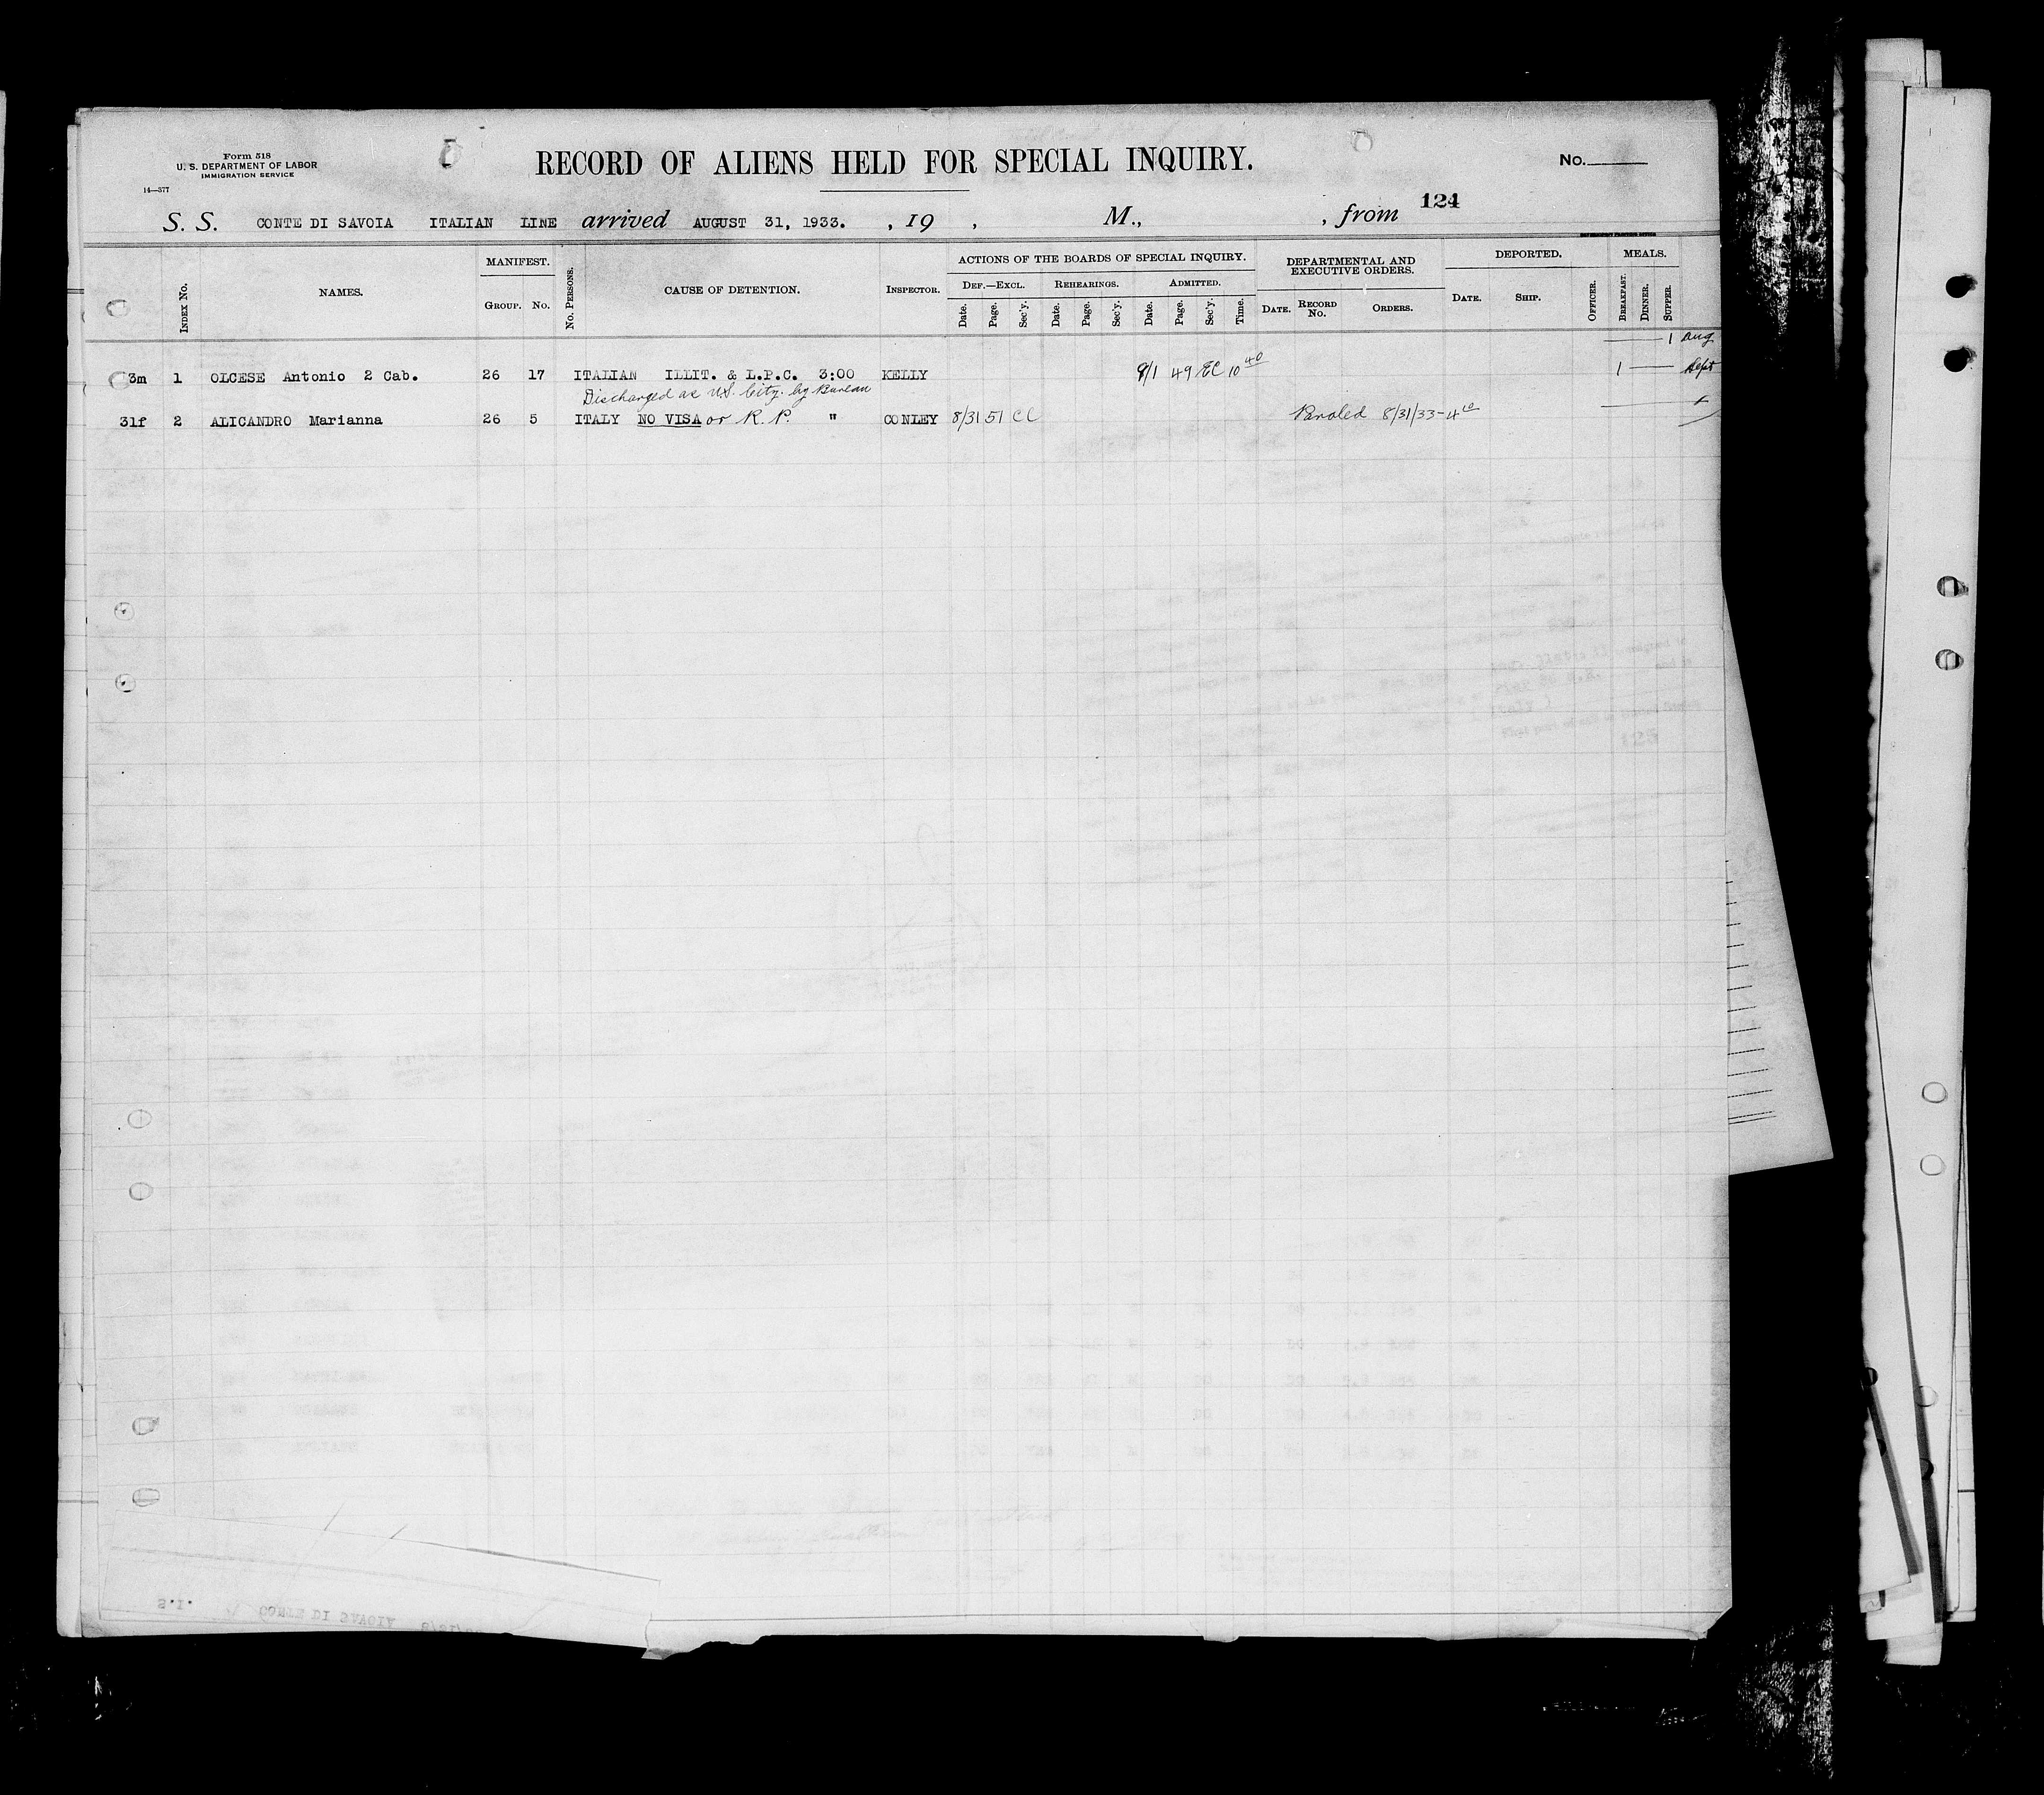 Form 518
U. S. DEPARTMENT OF LABOR
IMMIGRATION SERVICE
14—377
RECORD OF ALIENS HELD FOR SPECIAL INQUIRY.
No.
124
S. S. CONTE DI SAVOIA ITALIAN LINE arrived AUGUST 31, 1933. , 19 , M., , from
INDEX No. NAMES. MANIFEST. GROUP. No. No. PERSONS. CAUSE OF DETENTION. INSPECTOR. ACTIONS OF THE BOARDS OF SPECIAL INQUIRY. DEF.—EXCL. Date. Page. Sec'y. REHEARINGS. Date. Page. Sec'y. ADMITTED. Date. Page. Sec'y. Time. DEPARTMENTAL AND EXECUTIVE ORDERS. DATE. RECORD No. ORDERS. DEPORTED. DATE. SHIP. OFFICER. MEALS. BREAKFAST. DINNER. SUPPER.
1 Aug
3m 1 OLCESE Antonio 2 Cab. 26 17 ITALIAN ILLIT. & L.P.C. 3:00 KELLY 9/1 49 EC 10 40 1 Sept
Discharged as U.S. City. by Bureau
31f 2 ALICANDRO Marianna 26 5 ITALY NO VISA or R. P. " CONLEY 8/31 51 CC Paroled 8/31/33-4
S.I. CONTE DI SAVOIA